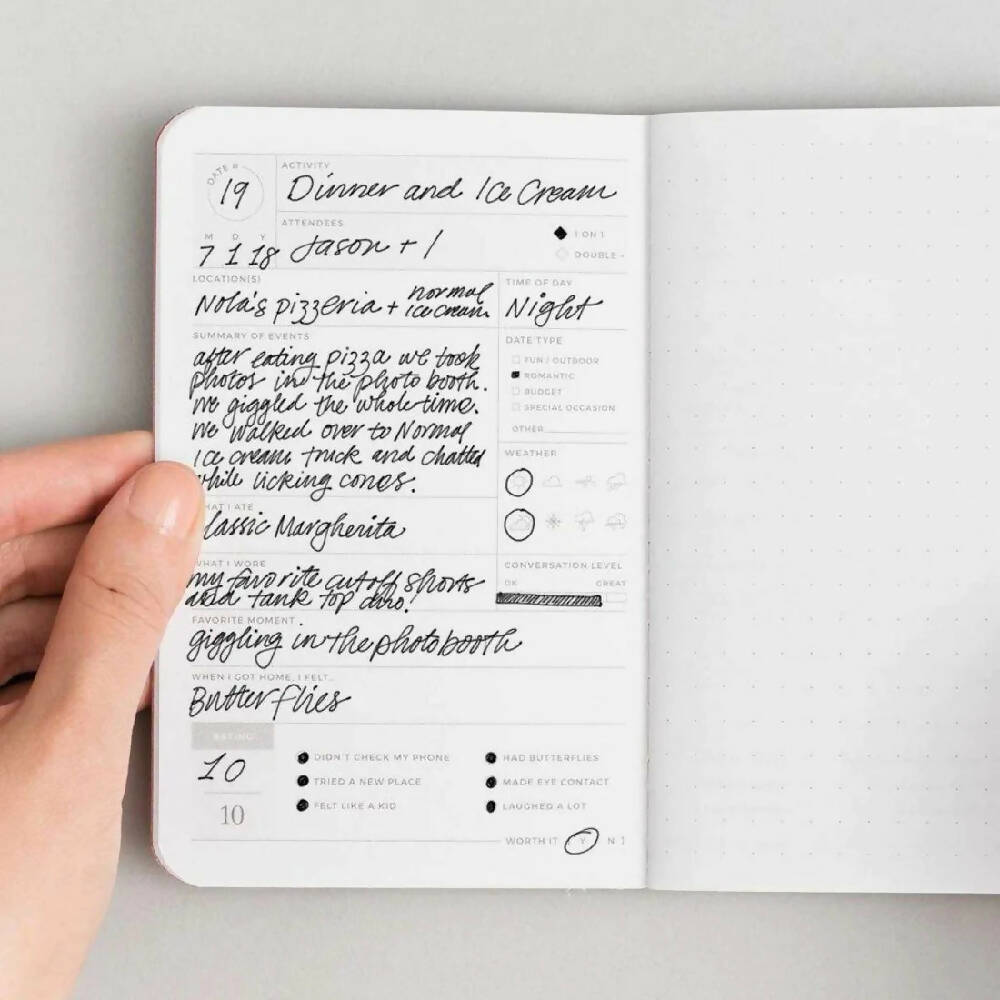 DATE #
19
ACTIVITY
Dinner and Ice Cream
M D Y
7 1 18
ATTENDEES
Jason + I
1 ON 1
DOUBLE +
LOCATION(S)
Nola's pizzeria + normal
ice cream
TIME OF DAY
Night
SUMMARY OF EVENTS
after eating pizza we took
photos in the photo booth.
We giggled the whole time.
We walked over to Normal
Ice cream truck and chatted
while licking cones.
DATE TYPE
FUN / OUTDOOR
ROMANTIC
BUDGET
SPECIAL OCCASION
OTHER
WEATHER
WHAT I ATE
Classic Margherita
WHAT I WORE
my favorite cutoff shorts
and tank top duo.
CONVERSATION LEVEL
OK GREAT
FAVORITE MOMENT
giggling in the photobooth
WHEN I GOT HOME, I FELT...
Butterflies
RATING
10
10
DIDN'T CHECK MY PHONE
TRIED A NEW PLACE
FELT LIKE A KID
HAD BUTTERFLIES
MADE EYE CONTACT
LAUGHED A LOT
WORTH IT Y N